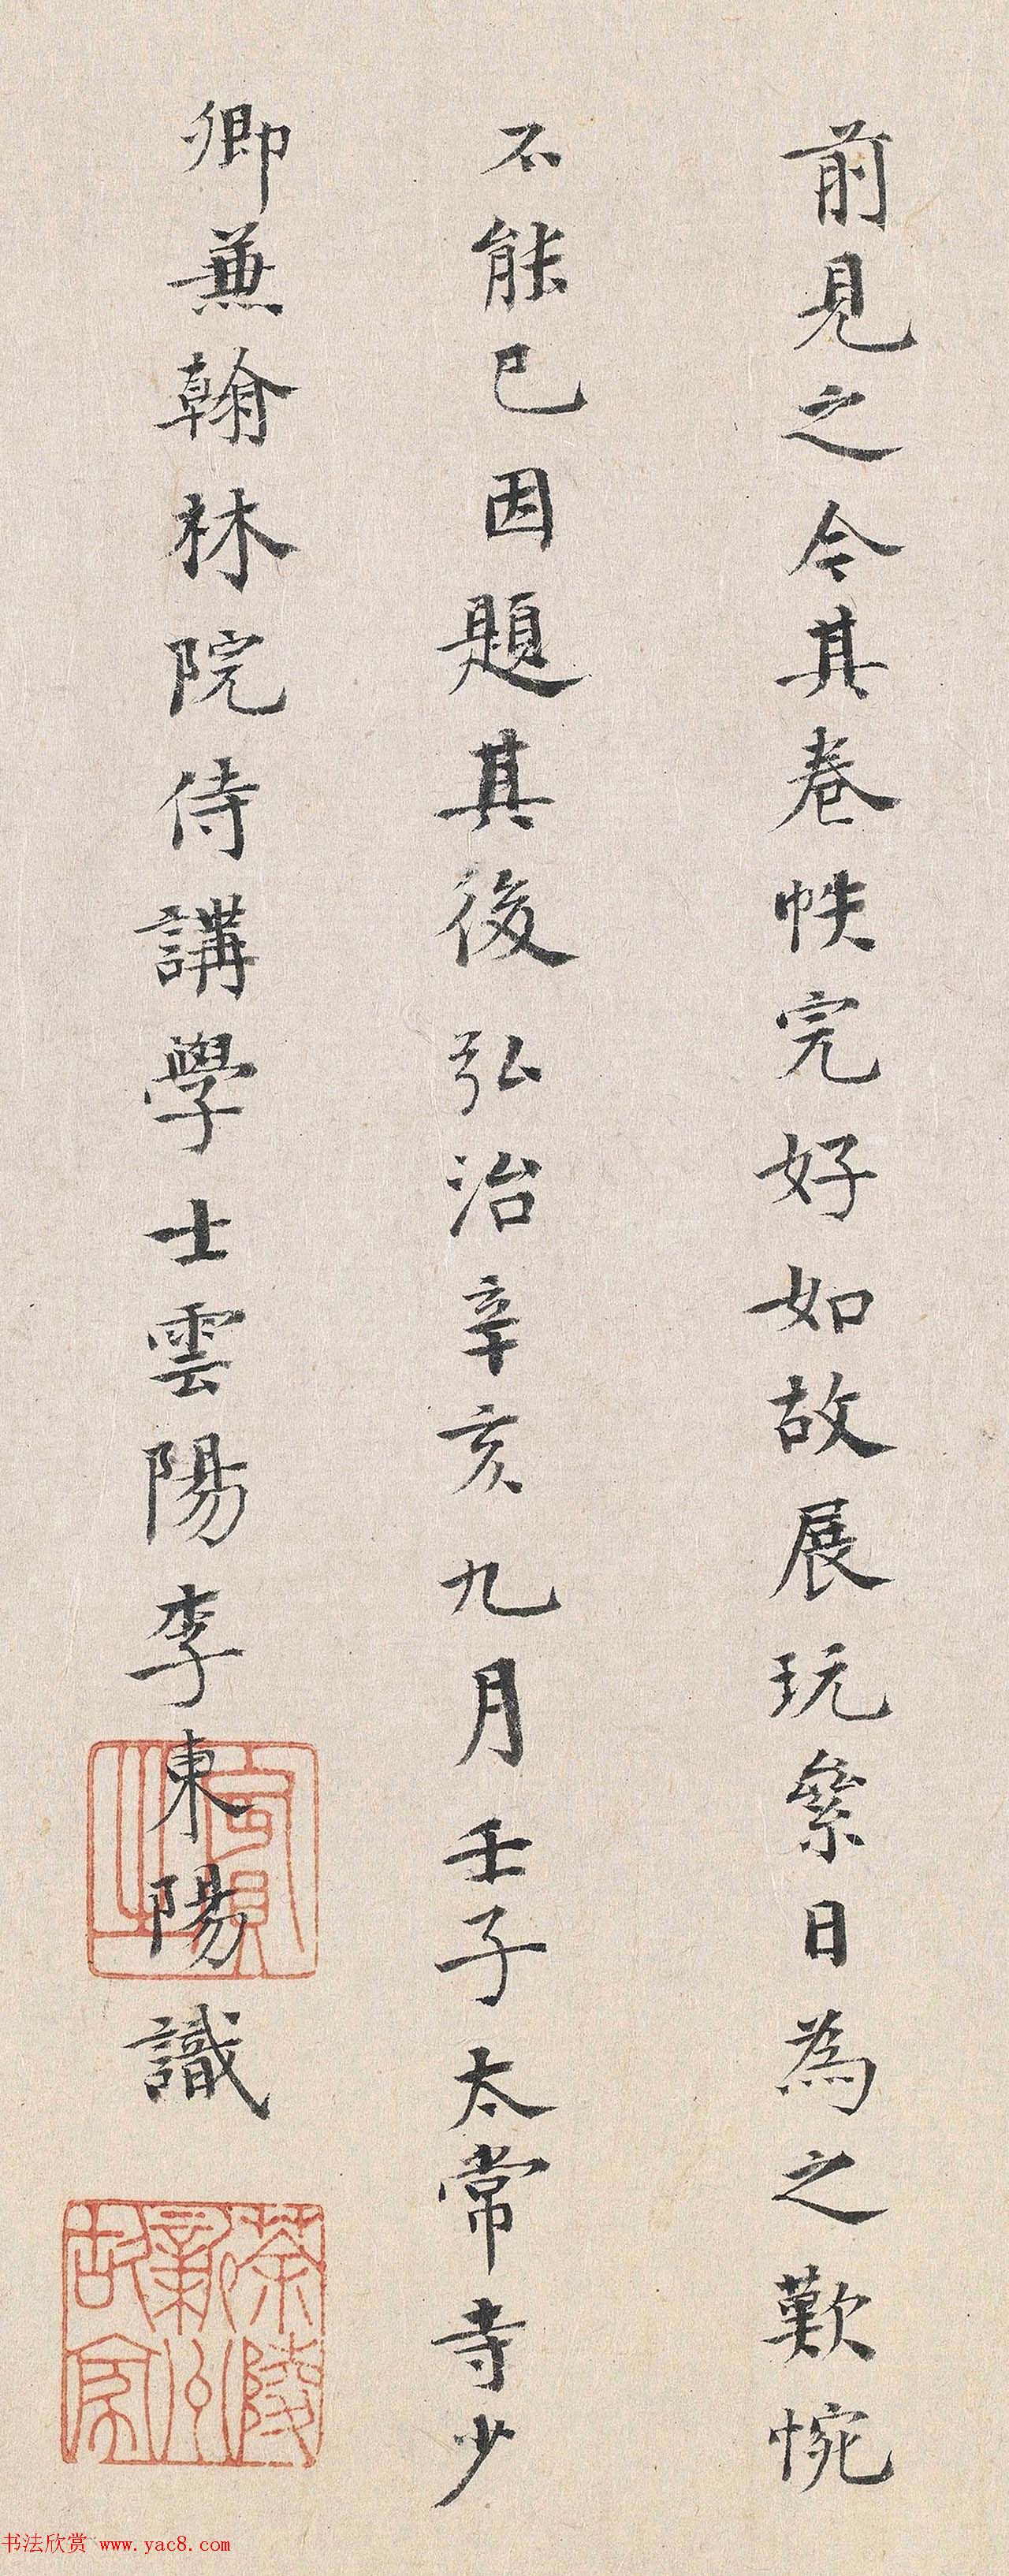 前見之今其卷帙完好如故展玩絫日為之歎惋
不能已因題其後弘治辛亥九月壬子太常寺少
卿兼翰林院侍講學士雲陽李東陽識
賓之
書法欣赏 www.yac8.com